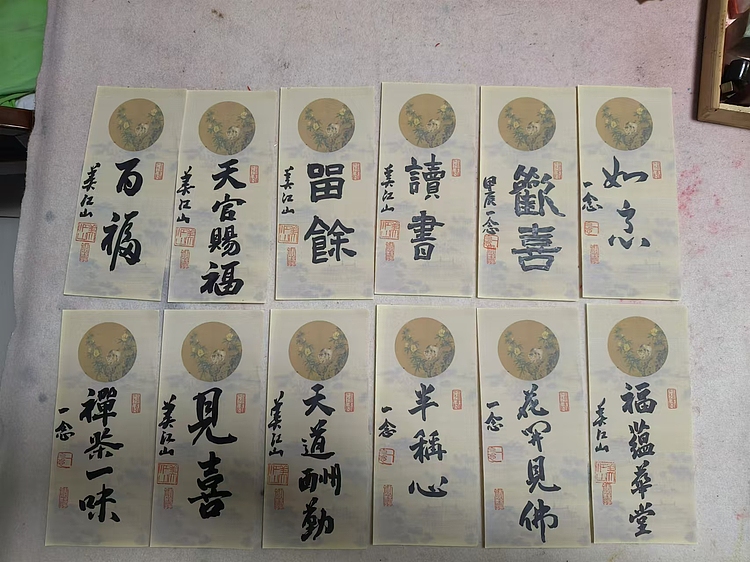 百福
姜江山
天官賜福
姜江山
畱餘
姜江山
讀書
姜江山
歡喜
甲辰一念
如意
一念
禪茶一味
一念
見喜
姜江山
天道酬勤
姜江山
半稱心
一念
花開見佛
一念
福蘊華堂
姜江山